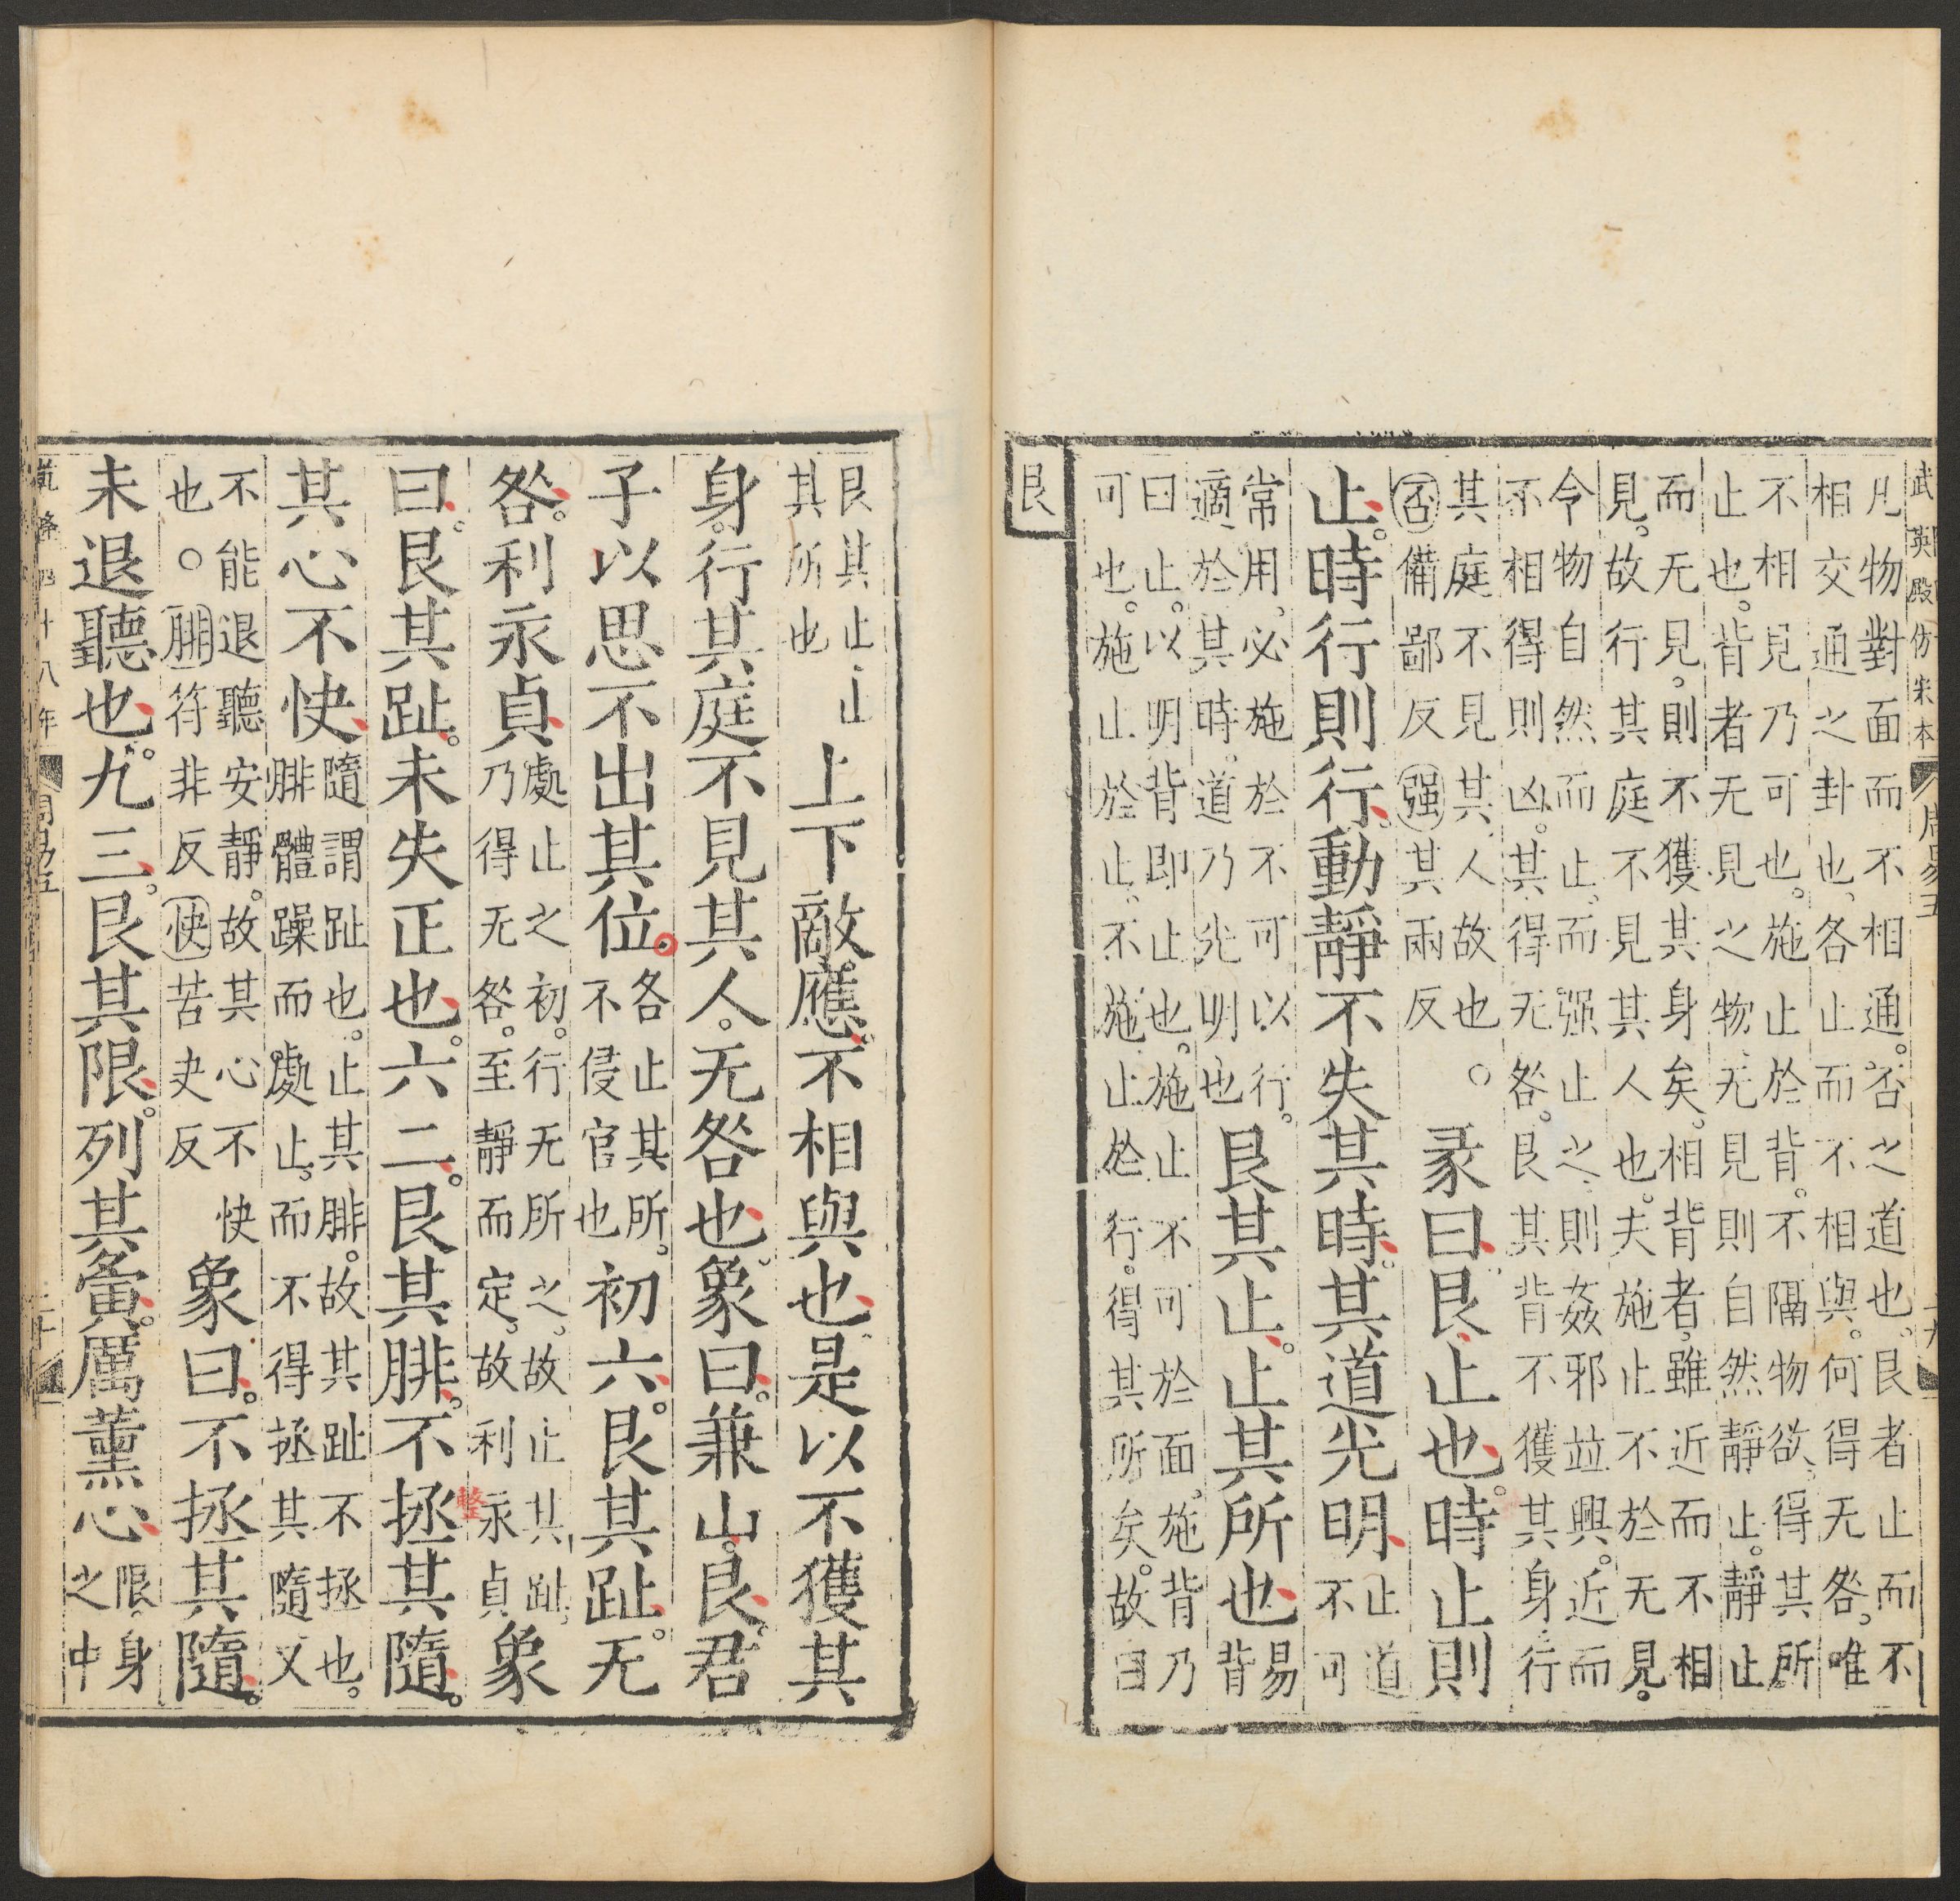 武英殿仿宋本 周易五
凡物對面而不相通。否之道也。艮者止而不
相交通之卦也。各止而不相與。何得无咎。唯
不相見乃可也。施止於背。不隔物欲。得其所
止也。背者无見之物。无見則自然靜止。靜止
而无見。則不獲其身矣。相背者。雖近而不相
見。故行其庭不見其人也。夫施止不於无見。
令物自然而止。而强止之則姦邪竝興。近而
不相得則凶。其得无咎。艮其背不獲其身行
其庭不見其人故也。○
否備鄙反强其兩反
彖曰。艮。止也。時止則
止。時行則行。動靜不失其時。其道光明
止道
不可
常用。必施於不可以行。
適於其時。道乃光明也
艮其止。止其所也
易
背
曰止。以明背即止也。施止不可於面。施背乃
可也。施止於止。不施止於行。得其所矣。故曰
艮
艮其止。止
其所也
上下敵應。不相與也。是以不獲其
身。行其庭不見其人。无咎也。象曰。兼山。艮。君
子以思不出其位。
各止其所。
不侵官也
初六。艮其趾。无
咎。利永貞
處止之初。行无所之。故止其趾。
乃得无咎。至靜而定。故利永貞
象
曰。艮其趾。未失正也。六二。艮其腓。不拯其隨。
其心不快
隨謂趾也。止其腓。故其趾不拯也。
腓體躁而處止。而不得拯其隨又
不能退聽安靜。故其心不快
也○腓符非反快苦夬反
象曰。不拯其隨。
未退聽也。九三。艮其限。列其夤。厲薰心
限。身
之中
乾隆四十八年 周易五 二十